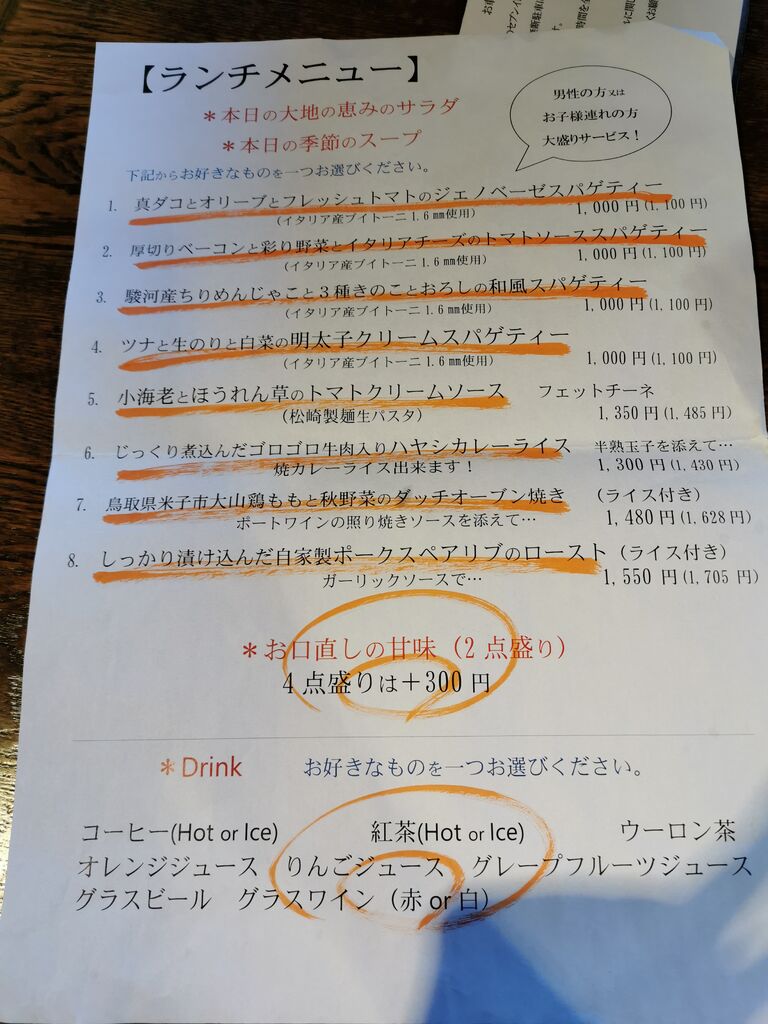 【ランチメニュー】
＊本日の大地の恵みのサラダ
＊本日の季節のスープ
男性の方又は
お子様連れの方
大盛りサービス！
下記からお好きなものを一つお選びください。
1. 真ダコとオリーブとフレッシュトマトのジェノベーゼスパゲティー
(イタリア産ブイトーニ1.6㎜使用) 1,000円(1,100円)
2. 厚切りベーコンと彩り野菜とイタリアチーズのトマトソーススパゲティー
(イタリア産ブイトーニ1.6㎜使用) 1,000円(1,100円)
3. 駿河産ちりめんじゃこと3種きのことおろしの和風スパゲティー
(イタリア産ブイトーニ1.6㎜使用) 1,000円(1,100円)
4. ツナと生のりと白菜の明太子クリームスパゲティー
(イタリア産ブイトーニ1.6㎜使用) 1,000円(1,100円)
5. 小海老とほうれん草のトマトクリームソース フェットチーネ
(松崎製麺生パスタ) 1,350円(1,485円)
6. じっくり煮込んだゴロゴロ牛肉入りハヤシカレーライス 半熟玉子を添えて…
焼カレーライス出来ます！ 1,300円(1,430円)
7. 鳥取県米子市大山鶏ももと秋野菜のダッチオーブン焼き (ライス付き)
ポートワインの照り焼きソースを添えて… 1,480円(1,628円)
8. しっかり漬け込んだ自家製ポークスペアリブのロースト (ライス付き)
ガーリックソースで… 1,550円(1,705円)
＊お口直しの甘味（2点盛り）
4点盛りは＋300円
＊Drink お好きなものを一つお選びください。
コーヒー(Hot or Ice) 紅茶(Hot or Ice) ウーロン茶
オレンジジュース りんごジュース グレープフルーツジュース
グラスビール グラスワイン（赤or白）